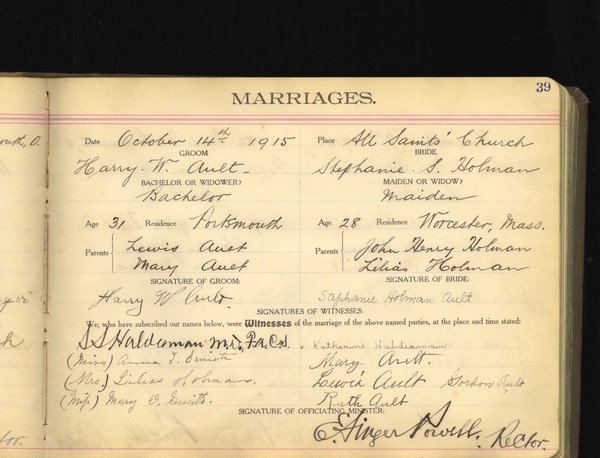 39
MARRIAGES.
Date October 14th 1915 Place All Saints' Church
GROOM BRIDE
Harry. W. Ault Stephanie. S. Holman
BACHELOR OR WIDOWER? MAIDEN OR WIDOW?
Bachelor Maiden
Age 31 Residence Portsmouth Age 28 Residence Worcester, Mass.
Parents Lewis Ault Parents John Henry Holman
Mary Ault Lilias Holman
SIGNATURE OF GROOM: SIGNATURE OF BRIDE:
Harry W Ault. Stephanie Holman Ault
SIGNATURES OF WITNESSES:
We, who have subscribed our names below, were Witnesses of the marriage of the above named parties, at the place and time stated:
S S Haldeman M.D., Katherine Haldeman.
(Miss) Anna T. Smith Mary Ault.
(Mrs.) Lilias Holman. Lewis Ault Gordon Ault
(Miss) Mary Smith. Ruth Ault
SIGNATURE OF OFFICIATING MINISTER:
E. Ainger Powell. Rector.